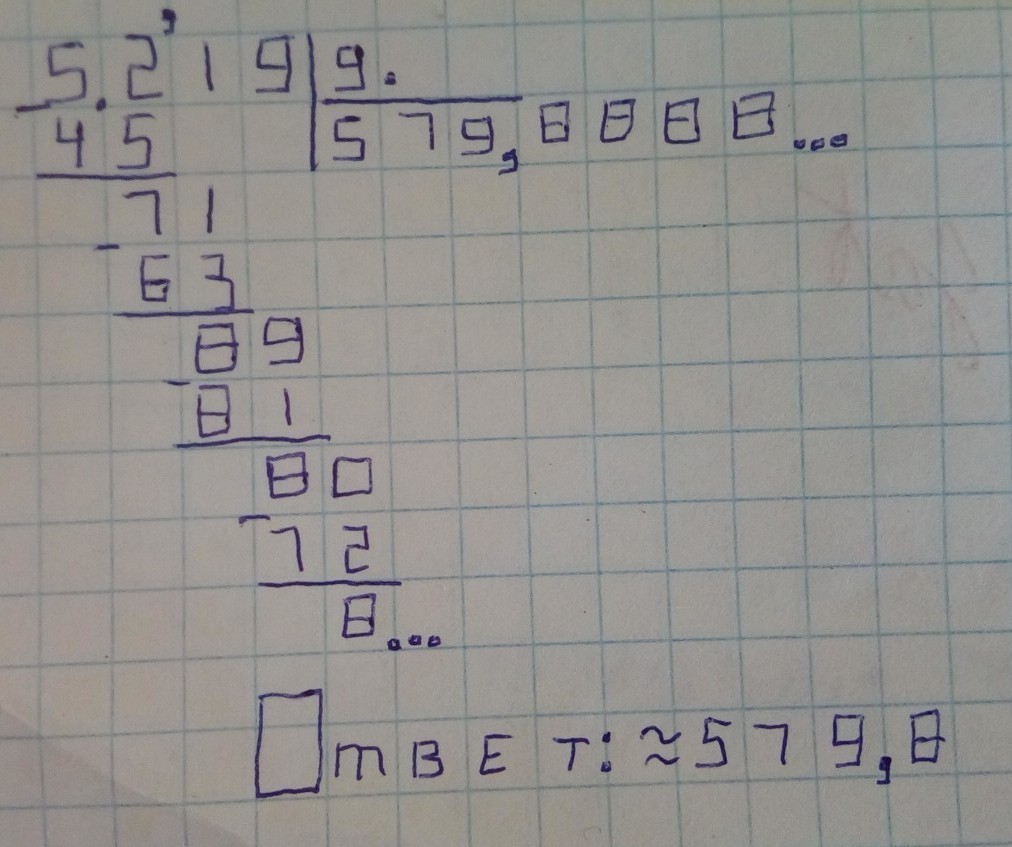 5.2'19 9.
45 579,8888...
71
- 63
89
- 81
80
- 72
8...
Ответ: ≈579,8